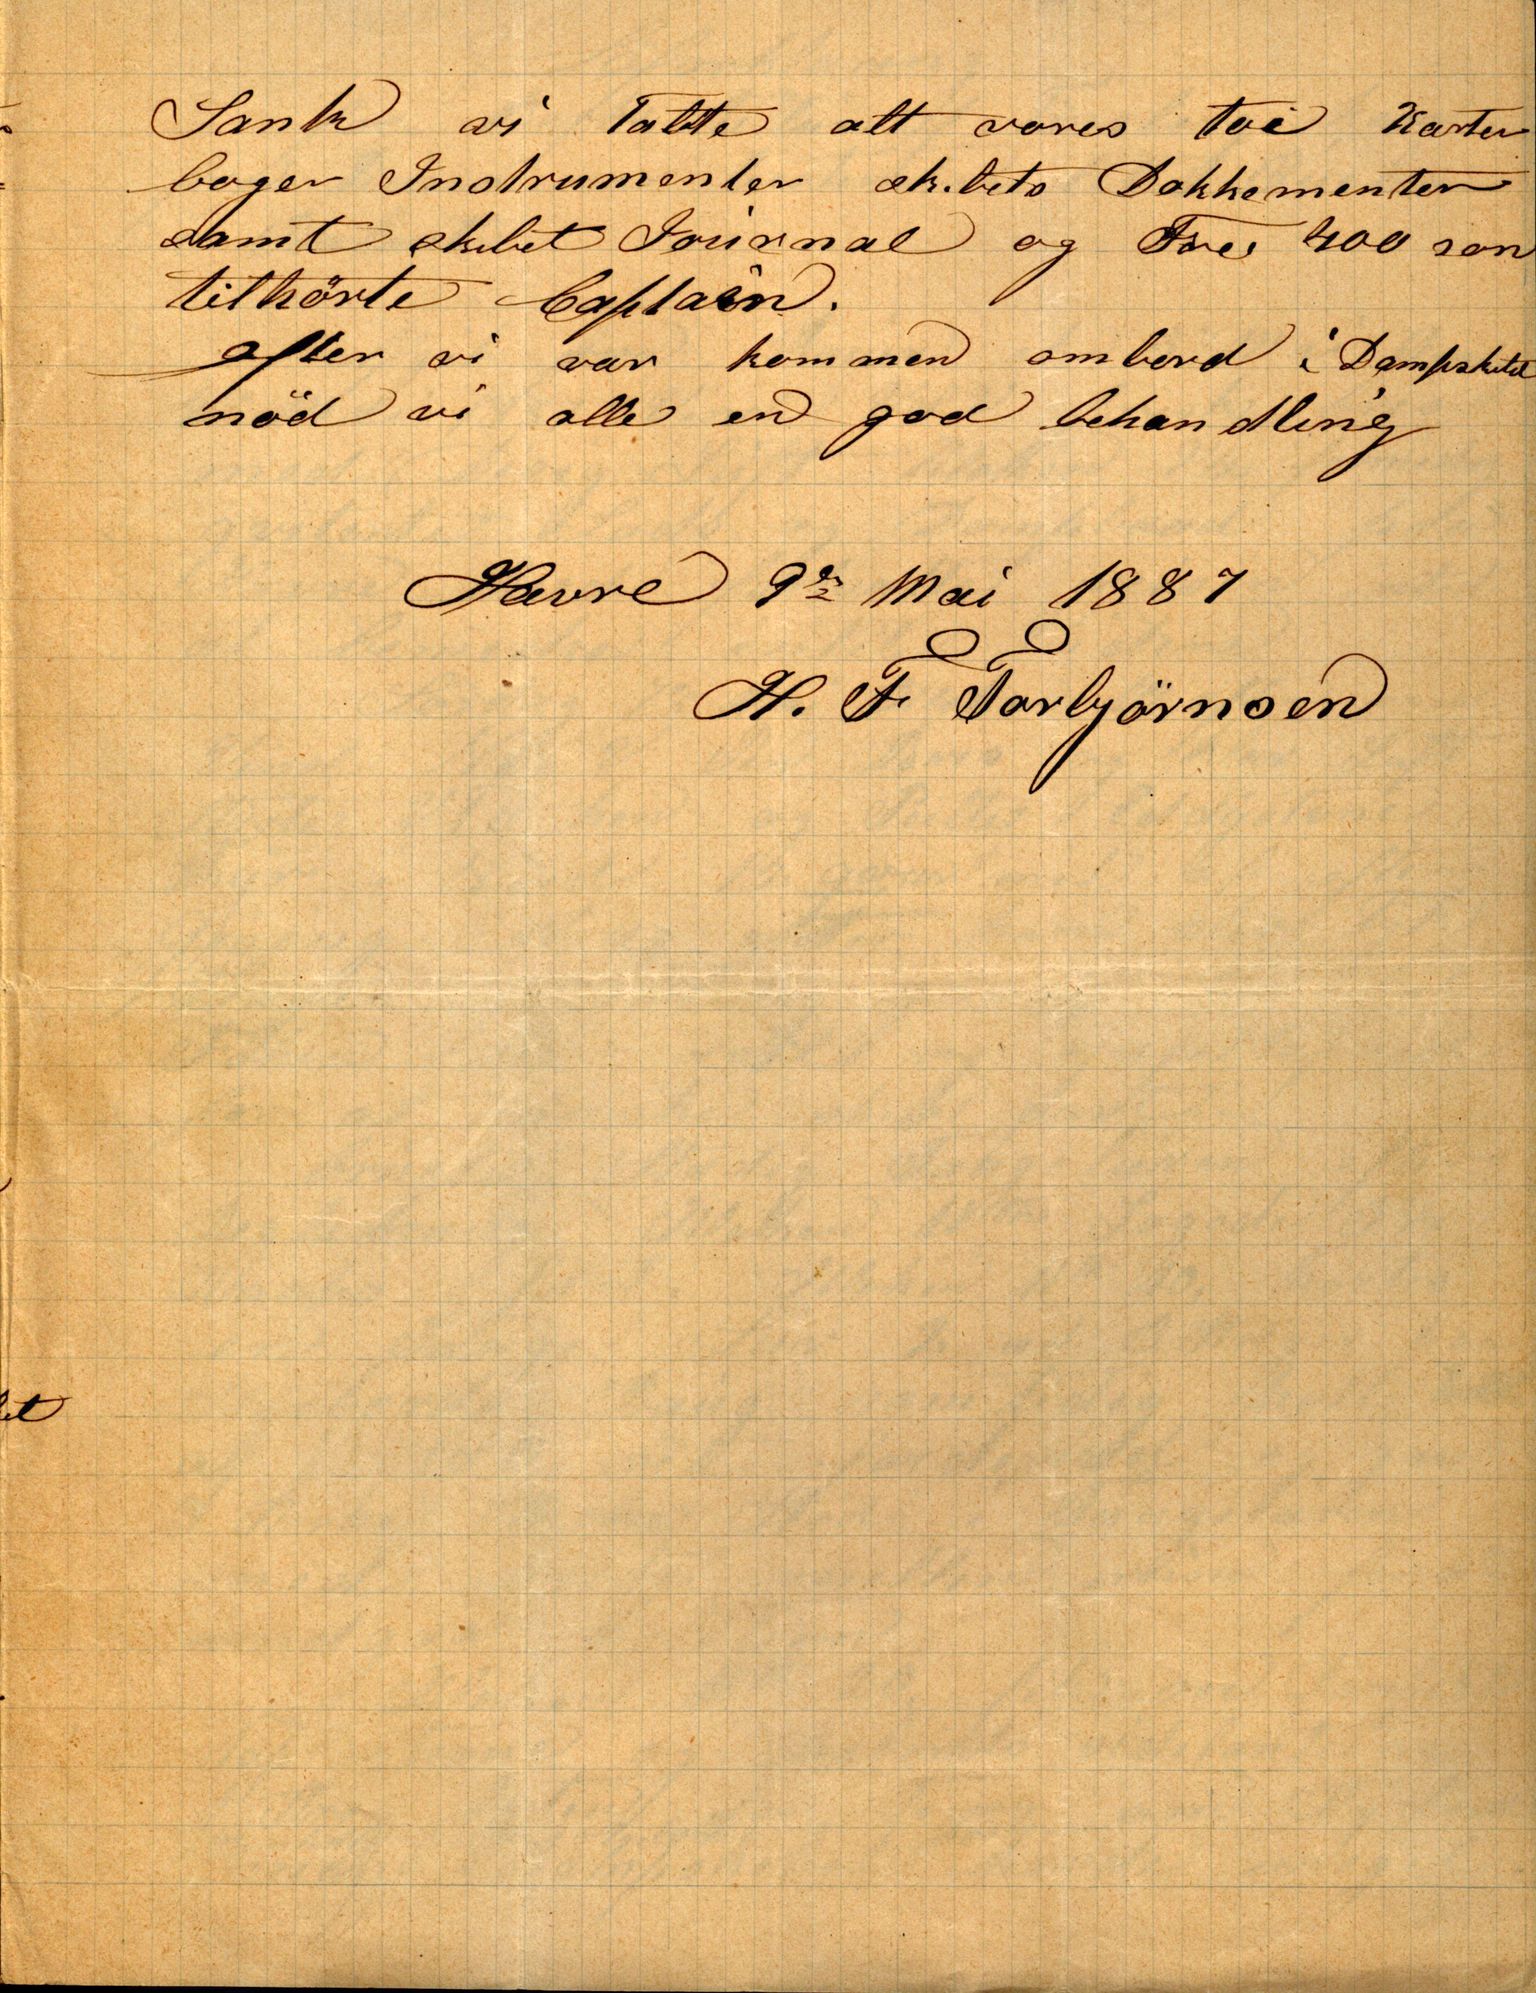 Sank vi Tabte alt vores toi Karter
boger Instrumenter skibets Dokkementer
samt skibet Journal og Frcs 400 som
tilhörte Captain.
after vi var kommen ombord i Dampskibet
nöd vi alle en god behandling
Havre 9de Mai 1887
H. F Torbjörnsen